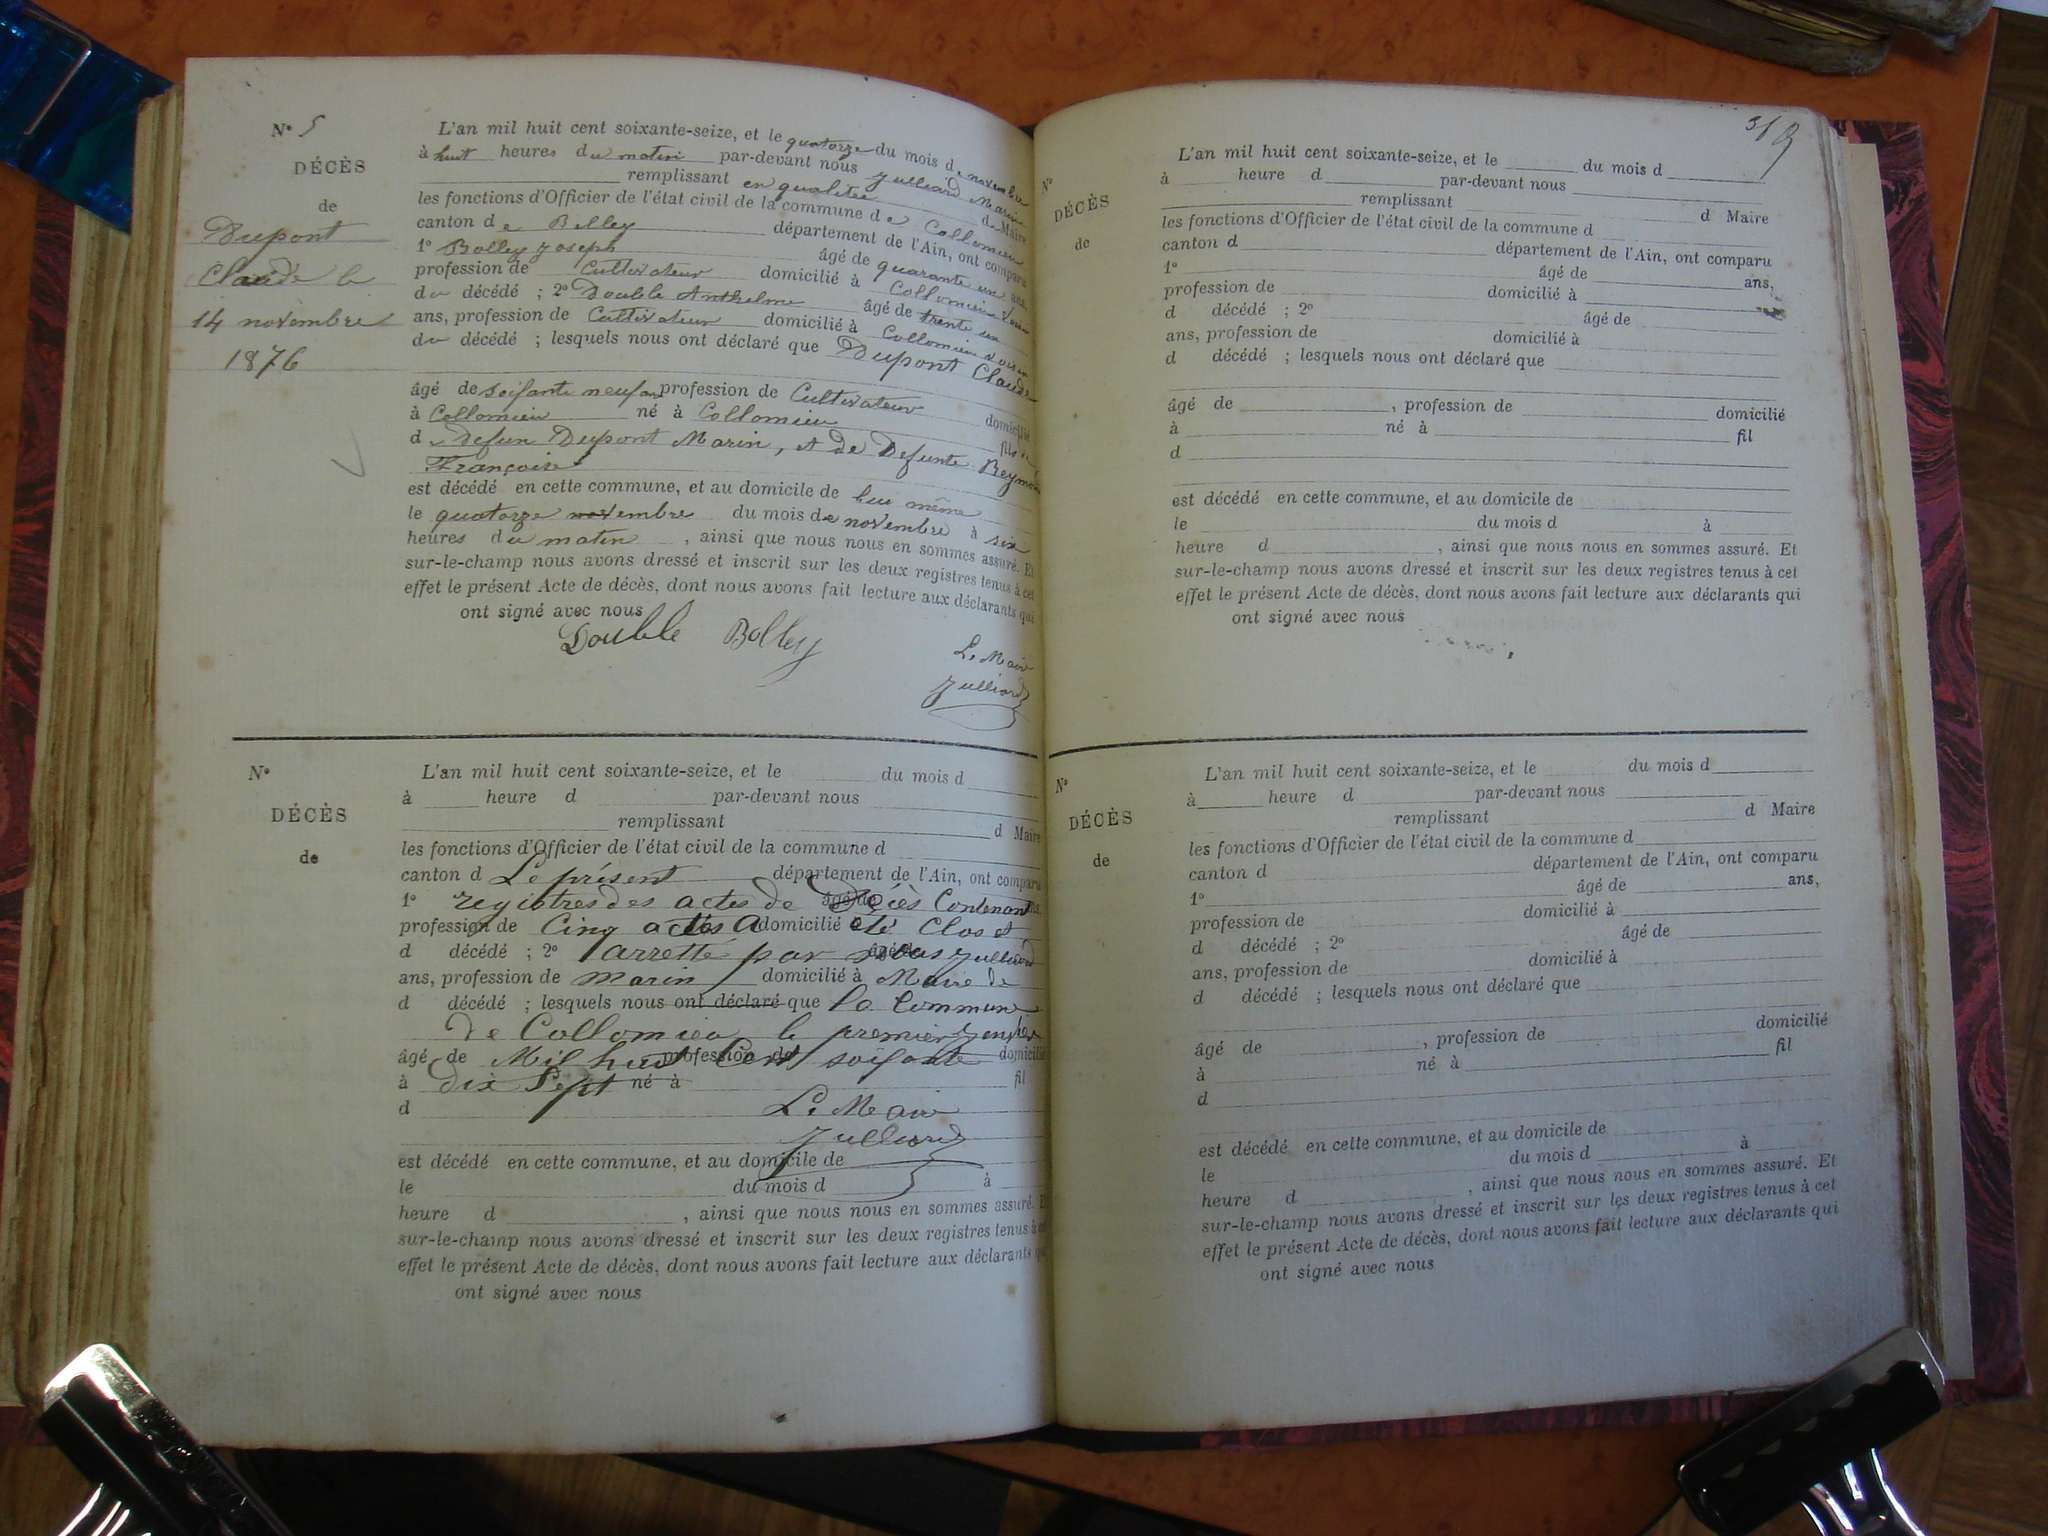 N° 5
DÉCÈS
de
Dupont
Claude le
14 novembre
1876
L'an mil huit cent soixante-seize, et le quatorze du mois de novembre
à huit heures du matin par-devant nous Julliard Marin
remplissant en qualitée de Maire
les fonctions d'Officier de l'état civil de la commune de Collomieu
canton de Belley département de l'Ain, ont comparu
1° Bolley Joseph âgé de quarante un ans,
profession de Cultivateur domicilié à Collomieu voisin
du décédé ; 2° Double Anthelme âgé de trente un
ans, profession de Cultivateur domicilié à Collomieu voisin
du décédé ; lesquels nous ont déclaré que Dupont Claude
âgé de soifante neuf ans profession de Cultivateur domicilié
à Collomieu né à Collomieu fils de
de Defun Dupont Marin, et de Defunte Reymond
Françoise
est décédé en cette commune, et au domicile de lui même
le quatorze novembre du mois de novembre à six
heures du matin , ainsi que nous nous en sommes assuré. Et
sur-le-champ nous avons dressé et inscrit sur les deux registres tenus à cet
effet le présent Acte de décès, dont nous avons fait lecture aux déclarants qui
ont signé avec nous
Double Bolley
Le Maire
Julliard
N°
DÉCÈS
de
L'an mil huit cent soixante-seize, et le du mois d
à heure d par-devant nous
remplissant d Maire
les fonctions d'Officier de l'état civil de la commune d
canton d Le présent département de l'Ain, ont comparu
1° registres des actes de Décès Contenant âgé de ans,
profession de Cinq actes A domicilié été Clos et
d décédé ; 2° arretté par nous Julliard âgé de
ans, profession de Marin domicilié à Maire de
d décédé ; lesquels nous ont déclaré que la Commune
de Collomieu le premier Janvier
âgé de Mil huit Cent soifante profession de domicilié
à dix Sept né à fil
d Le Maire
Julliard
est décédé en cette commune, et au domicile de
le du mois d à
heure d , ainsi que nous nous en sommes assuré. Et
sur-le-champ nous avons dressé et inscrit sur les deux registres tenus à cet
effet le présent Acte de décès, dont nous avons fait lecture aux déclarants qui
ont signé avec nous
N°
DÉCÈS
de
L'an mil huit cent soixante-seize, et le du mois d
à heure d par-devant nous
remplissant d Maire
les fonctions d'Officier de l'état civil de la commune d
canton d département de l'Ain, ont comparu
1° âgé de ans,
profession de domicilié à
d décédé ; 2° âgé de
ans, profession de domicilié à
d décédé ; lesquels nous ont déclaré que
âgé de , profession de domicilié
à né à fil
d
est décédé en cette commune, et au domicile de
le du mois d à
heure d , ainsi que nous nous en sommes assuré. Et
sur-le-champ nous avons dressé et inscrit sur les deux registres tenus à cet
effet le présent Acte de décès, dont nous avons fait lecture aux déclarants qui
ont signé avec nous
N°
DÉCÈS
de
L'an mil huit cent soixante-seize, et le du mois d
à heure d par-devant nous
remplissant d Maire
les fonctions d'Officier de l'état civil de la commune d
canton d département de l'Ain, ont comparu
1° âgé de ans,
profession de domicilié à
d décédé ; 2° âgé de
ans, profession de domicilié à
d décédé ; lesquels nous ont déclaré que
âgé de , profession de domicilié
à né à fil
d
est décédé en cette commune, et au domicile de
le du mois d à
heure d , ainsi que nous nous en sommes assuré. Et
sur-le-champ nous avons dressé et inscrit sur les deux registres tenus à cet
effet le présent Acte de décès, dont nous avons fait lecture aux déclarants qui
ont signé avec nous